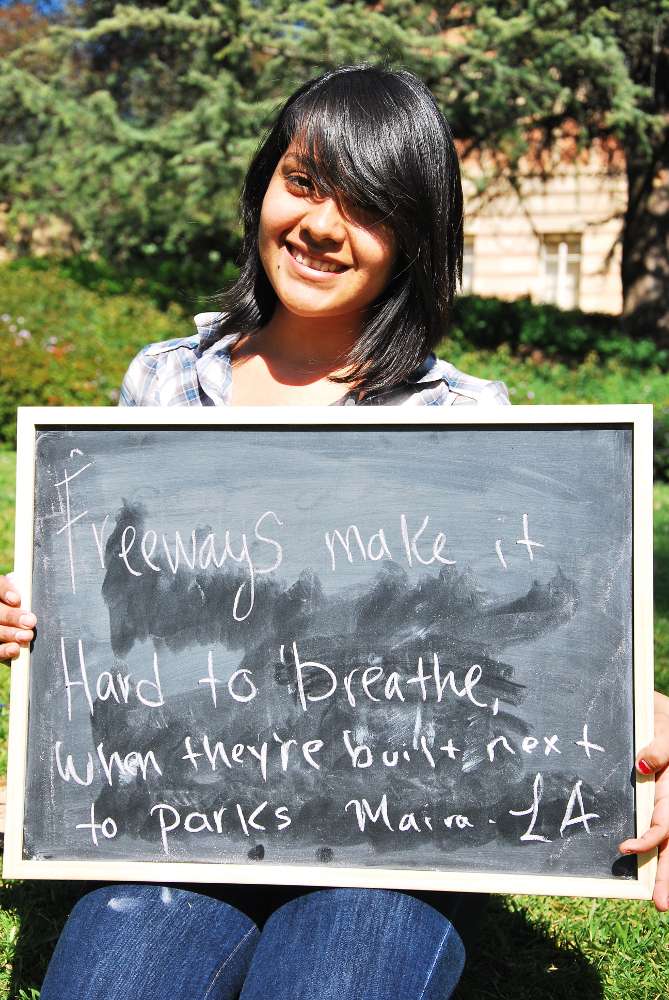 Freeways make it
Hard to breathe,
when they're built next
to parks Maira. LA